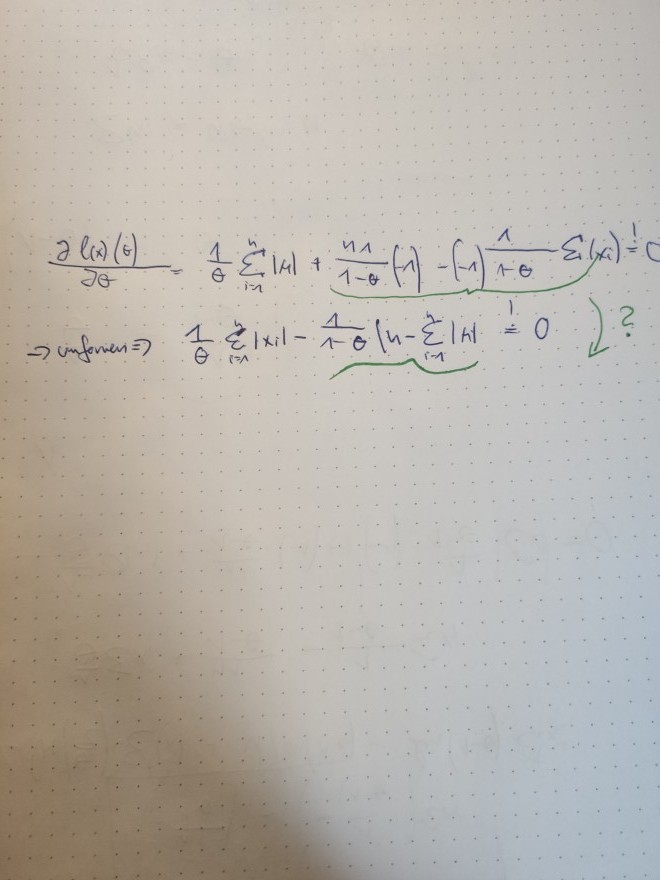 ∂ l(x)(θ) / ∂θ = 1/θ Σ_{i=1}^{n} |xi| + n·1/(1-θ) (-1) - (-1) 1/(1-θ) Σ|xi| =! 0
=> umformen => 1/θ Σ_{i=1}^{n} |xi| - 1/(1-θ) (n - Σ_{i=1}^{n} |xi| =! 0 ?